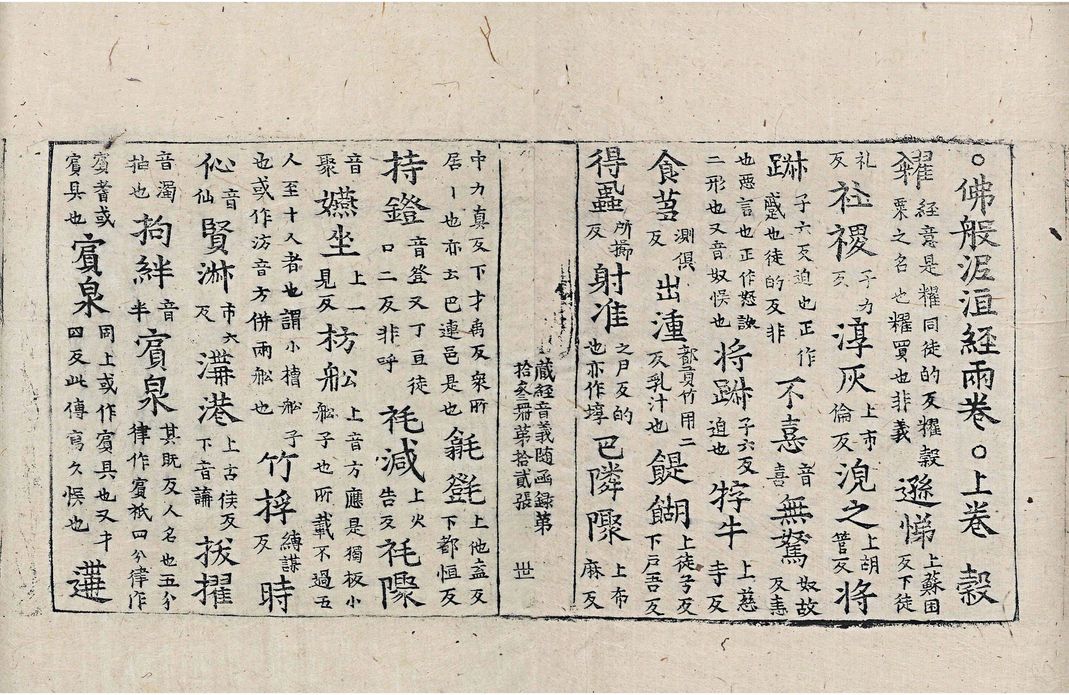 ○佛般泥洹經兩卷○上卷 糓
糴經意是糴同徒的反糴糓粟之名也糴買也非義 遜悌上蘇困反下徒
礼反 社稷子力反 淳灰上市倫反 浼之上胡管反 將
踧子六反迫也正作蹙也徒的反非 不憙音喜 無駑奴故反恚
也恶言也正作怒詉二形也又音奴悮也 將踧子六反迫也 牸牛上慈寺反
食芻測俱反 出湩都貢竹用二反乳汁也 餬上徒子反下戶吾反
得蝨所擳反 射准之尸反的也亦作埻 巴隣隟上布麻反
藏經音義隨函録第拾叁冊第拾貳張 世
中力真反下才焉反衆所居丨也亦云巴連邑是也 㲪上他盍反下都恒反
持鐙音登又丁亘徒口二反非呼 秏減上火告反 秏隟
音聚 嬿坐上一見反 枋舩上音方應是獨板小舩子也所載不過五
人至十人者也謂小槽舩子也或作汸音方併兩舩也 竹桴縛謀反 時
伈音仙 賢淋市六反 溝港上古侯反下音講 拔擢
音濁拍也 拘絆音半 賔泉其既反人名也五分律作賔祇四分律作
賔耆或賔具也 賔泉同上或作賔具也又才四反此傳寫久悮也 遘